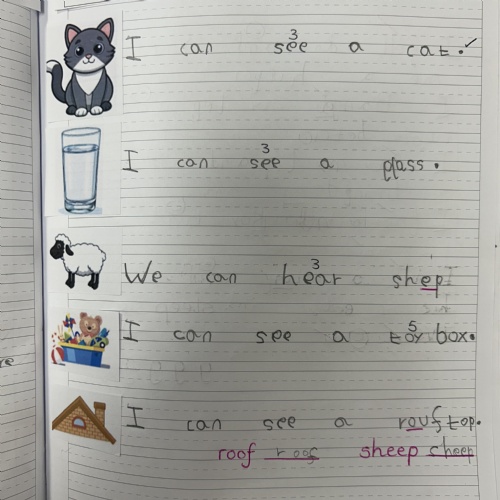 3
I can see a cat. ✓
3
I can see a glass.
3
We can hear shep
5
I can see a toy box.
I can see a rouftop.
roof roof sheep sheep